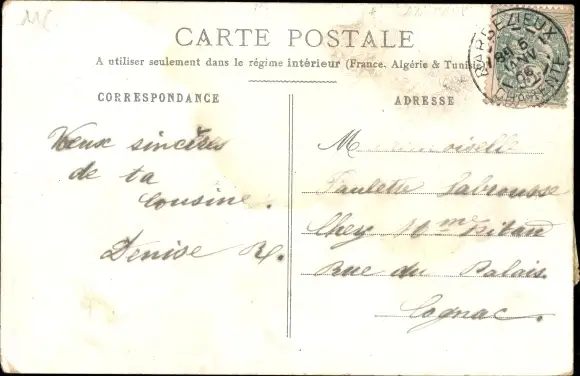 CARTE POSTALE
A utiliser seulement dans le régime intérieur (France, Algérie & Tunis
CORRESPONDANCE
Veux sincères
de ta
Cousine.
Denise R.
ADRESSE
M oiselle
Paulette Labrousse
Chez Mme
Rue du Palais
Cognac.
BARBEZIEUX
CHARENTE